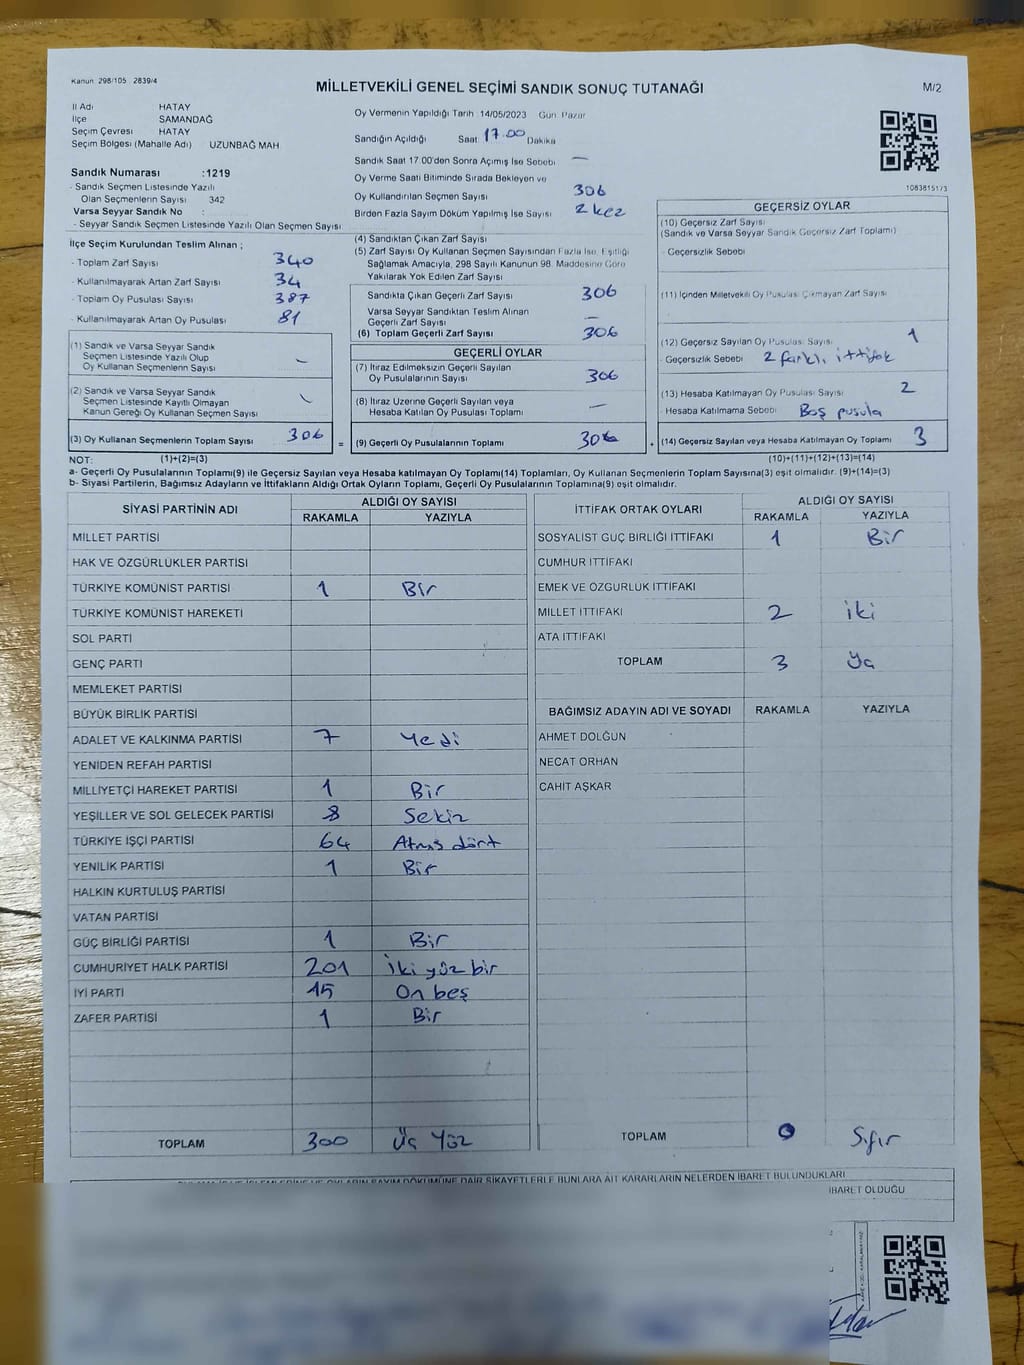 Kanun: 298/105 2839/4
MİLLETVEKİLİ GENEL SEÇİMİ SANDIK SONUÇ TUTANAĞI
M/2
İl Adı HATAY
İlçe SAMANDAĞ
Seçim Çevresi HATAY
Seçim Bölgesi (Mahalle Adı) UZUNBAĞ MAH
Sandık Numarası :1219
- Sandık Seçmen Listesinde Yazılı
Olan Seçmenlerin Sayısı 342
Varsa Seyyar Sandık No :
- Seyyar Sandık Seçmen Listesinde Yazılı Olan Seçmen Sayısı
Oy Vermenin Yapıldığı Tarih 14/05/2023 Gün Pazar
Sandığın Açıldığı Saat 17.00 Dakika
Sandık Saat 17:00'den Sonra Açımış İse Sebebi —
Oy Verme Saati Bitiminde Sırada Bekleyen ve
Oy Kullandırılan Seçmen Sayısı 306
Birden Fazla Sayım Döküm Yapılmış İse Sayısı 2 kez
1083815173
İlçe Seçim Kurulundan Teslim Alınan ;
- Toplam Zarf Sayısı 340
- Kullanılmayarak Artan Zarf Sayısı 34
- Toplam Oy Pusulası Sayısı 387
- Kullanılmayarak Artan Oy Pusulası 81
(1) Sandık ve Varsa Seyyar Sandık
Seçmen Listesinde Yazılı Olup
Oy Kullanan Seçmenlerin Sayısı –
(2) Sandık ve Varsa Seyyar Sandık
Seçmen Listesinde Kayıtlı Olmayan
Kanun Gereği Oy Kullanan Seçmen Sayısı
(3) Oy Kullanan Seçmenlerin Toplam Sayısı 306
(4) Sandıktan Çıkan Zarf Sayısı
(5) Zarf Sayısı Oy Kullanan Seçmen Sayısından Fazla İse, Eşitliği
Sağlamak Amacıyla, 298 Sayılı Kanunun 98. Maddesine Göre
Yakılarak Yok Edilen Zarf Sayısı
Sandıkta Çıkan Geçerli Zarf Sayısı 306
Varsa Seyyar Sandıktan Teslim Alınan
Geçerli Zarf Sayısı –
(6) Toplam Geçerli Zarf Sayısı 306
GEÇERLİ OYLAR
(7) İtiraz Edilmeksizin Geçerli Sayılan
Oy Pusulalarının Sayısı 306
(8) İtiraz Üzerine Geçerli Sayılan veya
Hesaba Katılan Oy Pusulası Toplamı —
= (9) Geçerli Oy Pusulalarının Toplamı 306 +
GEÇERSİZ OYLAR
(10) Geçersiz Zarf Sayısı
(Sandık ve Varsa Seyyar Sandık Geçersiz Zarf Toplamı)
- Geçersizlik Sebebi
(11) İçinden Milletvekili Oy Pusulası Çıkmayan Zarf Sayısı
(12) Geçersiz Sayılan Oy Pusulası Sayısı 1
- Geçersizlik Sebebi 2 farklı ittifak
(13) Hesaba Katılmayan Oy Pusulası Sayısı 2
- Hesaba Katılmama Sebebi Boş pusula
(14) Geçersiz Sayılan veya Hesaba Katılmayan Oy Toplamı 3
NOT: (1)+(2)=(3) (10)+(11)+(12)+(13)=(14)
a- Geçerli Oy Pusulalarının Toplamı(9) ile Geçersiz Sayılan veya Hesaba katılmayan Oy Toplamı(14) Toplamları, Oy Kullanan Seçmenlerin Toplam Sayısına(3) eşit olmalıdır. (9)+(14)=(3)
b- Siyasi Partilerin, Bağımsız Adayların ve İttifakların Aldığı Oyların Toplamı, Geçerli Oy Pusulalarının Toplamına(9) eşit olmalıdır.
SİYASİ PARTİNİN ADI ALDIĞI OY SAYISI
RAKAMLA YAZIYLA
MİLLET PARTİSİ
HAK VE ÖZGÜRLÜKLER PARTİSİ
TÜRKİYE KOMÜNİST PARTİSİ 1 Bir
TÜRKİYE KOMÜNİST HAREKETİ
SOL PARTİ
GENÇ PARTİ
MEMLEKET PARTİSİ
BÜYÜK BİRLİK PARTİSİ
ADALET VE KALKINMA PARTİSİ 7 Yedi
YENİDEN REFAH PARTİSİ
MİLLİYETÇİ HAREKET PARTİSİ 1 Bir
YEŞİLLER VE SOL GELECEK PARTİSİ 8 Sekiz
TÜRKİYE İŞÇİ PARTİSİ 64 Atmış dört
YENİLİK PARTİSİ 1 Bir
HALKIN KURTULUŞ PARTİSİ
VATAN PARTİSİ
GÜÇ BİRLİĞİ PARTİSİ 1 Bir
CUMHURİYET HALK PARTİSİ 201 İki yüz bir
İYİ PARTİ 15 On beş
ZAFER PARTİSİ 1 Bir
TOPLAM 300 Üç Yüz
İTTİFAK ORTAK OYLARI ALDIĞI OY SAYISI
RAKAMLA YAZIYLA
SOSYALİST GÜÇ BİRLİĞİ İTTİFAKI 1 Bir
CUMHUR İTTİFAKI
EMEK VE ÖZGÜRLÜK İTTİFAKI
MİLLET İTTİFAKI 2 iki
ATA İTTİFAKI
TOPLAM 3 Üç
BAĞIMSIZ ADAYIN ADI VE SOYADI RAKAMLA YAZIYLA
AHMET DOLĞUN
NECAT ORHAN
CAHİT AŞKAR
TOPLAM 0 Sıfır
OYLARIN SAYIM DÖKÜMÜNE DAİR ŞİKAYETLERLE BUNLARA AİT KARARLARIN NELERDEN İBARET BULUNDUKLARI
İBARET OLDUĞU